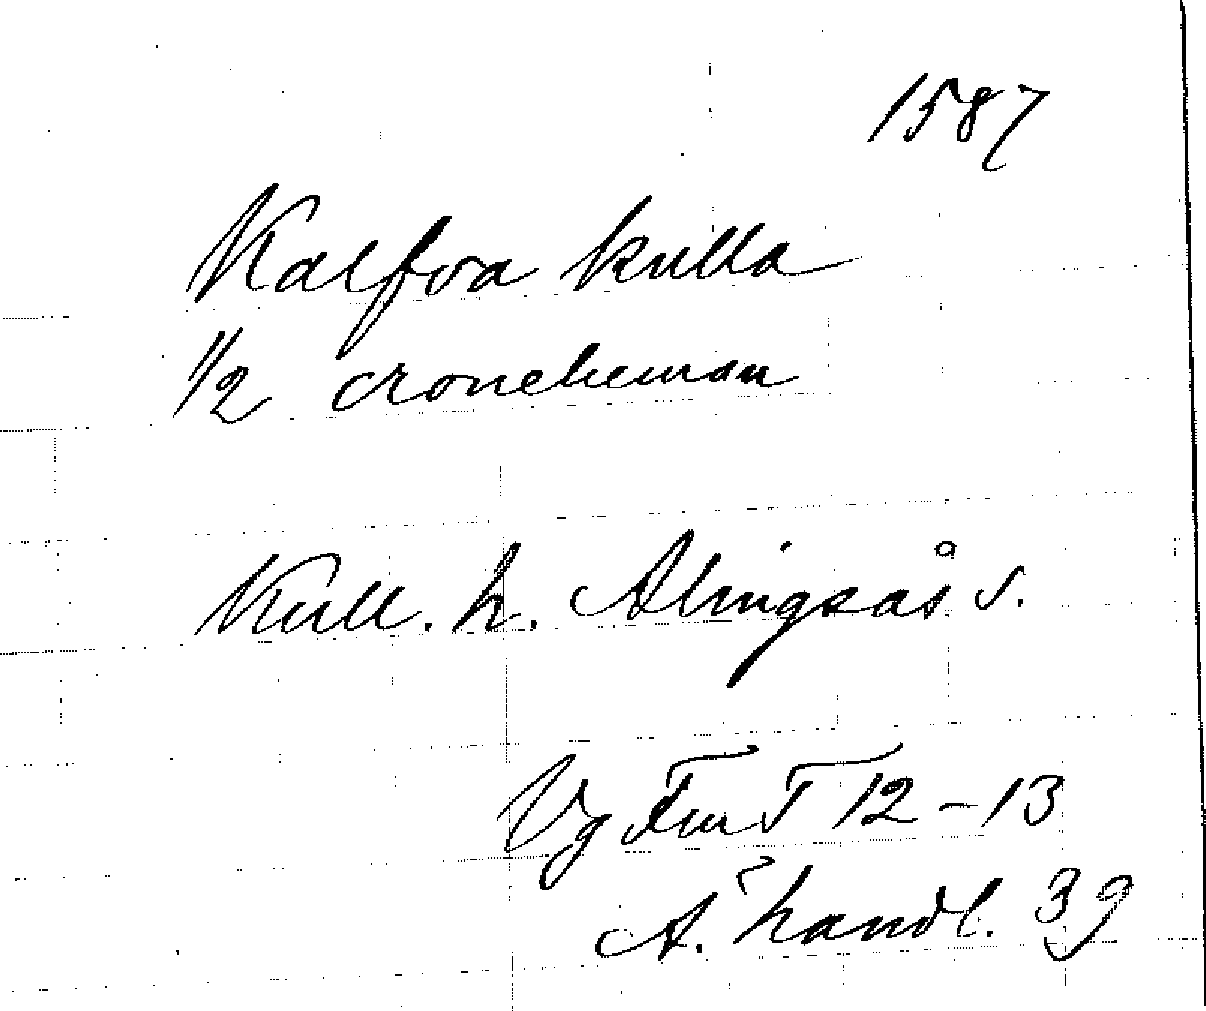 1587
Kalfva kulla
1/2 croneheman
Kull. h. Alingsås s.
Vg Fm T 12-13
A. handl. 39